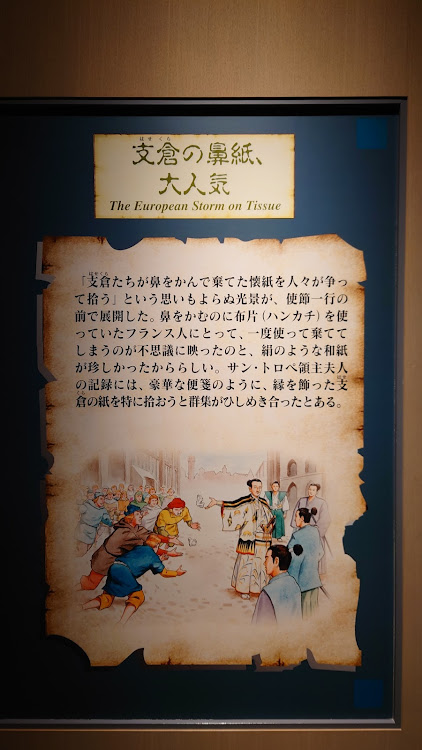 はせくら
支倉の鼻紙、
大人気
The European Storm on Tissue
はせくら
「支倉たちが鼻をかんで棄てた懐紙を人々が争っ
て拾う」という思いもよらぬ光景が、使節一行の
前で展開した。鼻をかむのに布片(ハンカチ)を使
っていたフランス人にとって、一度使って棄てて
しまうのが不思議に映ったのと、絹のような和紙
が珍しかったからららしい。サン・トロペ領主夫人
の記録には、豪華な便箋のように、縁を飾った支
倉の紙を特に拾おうと群集がひしめき合ったとある。